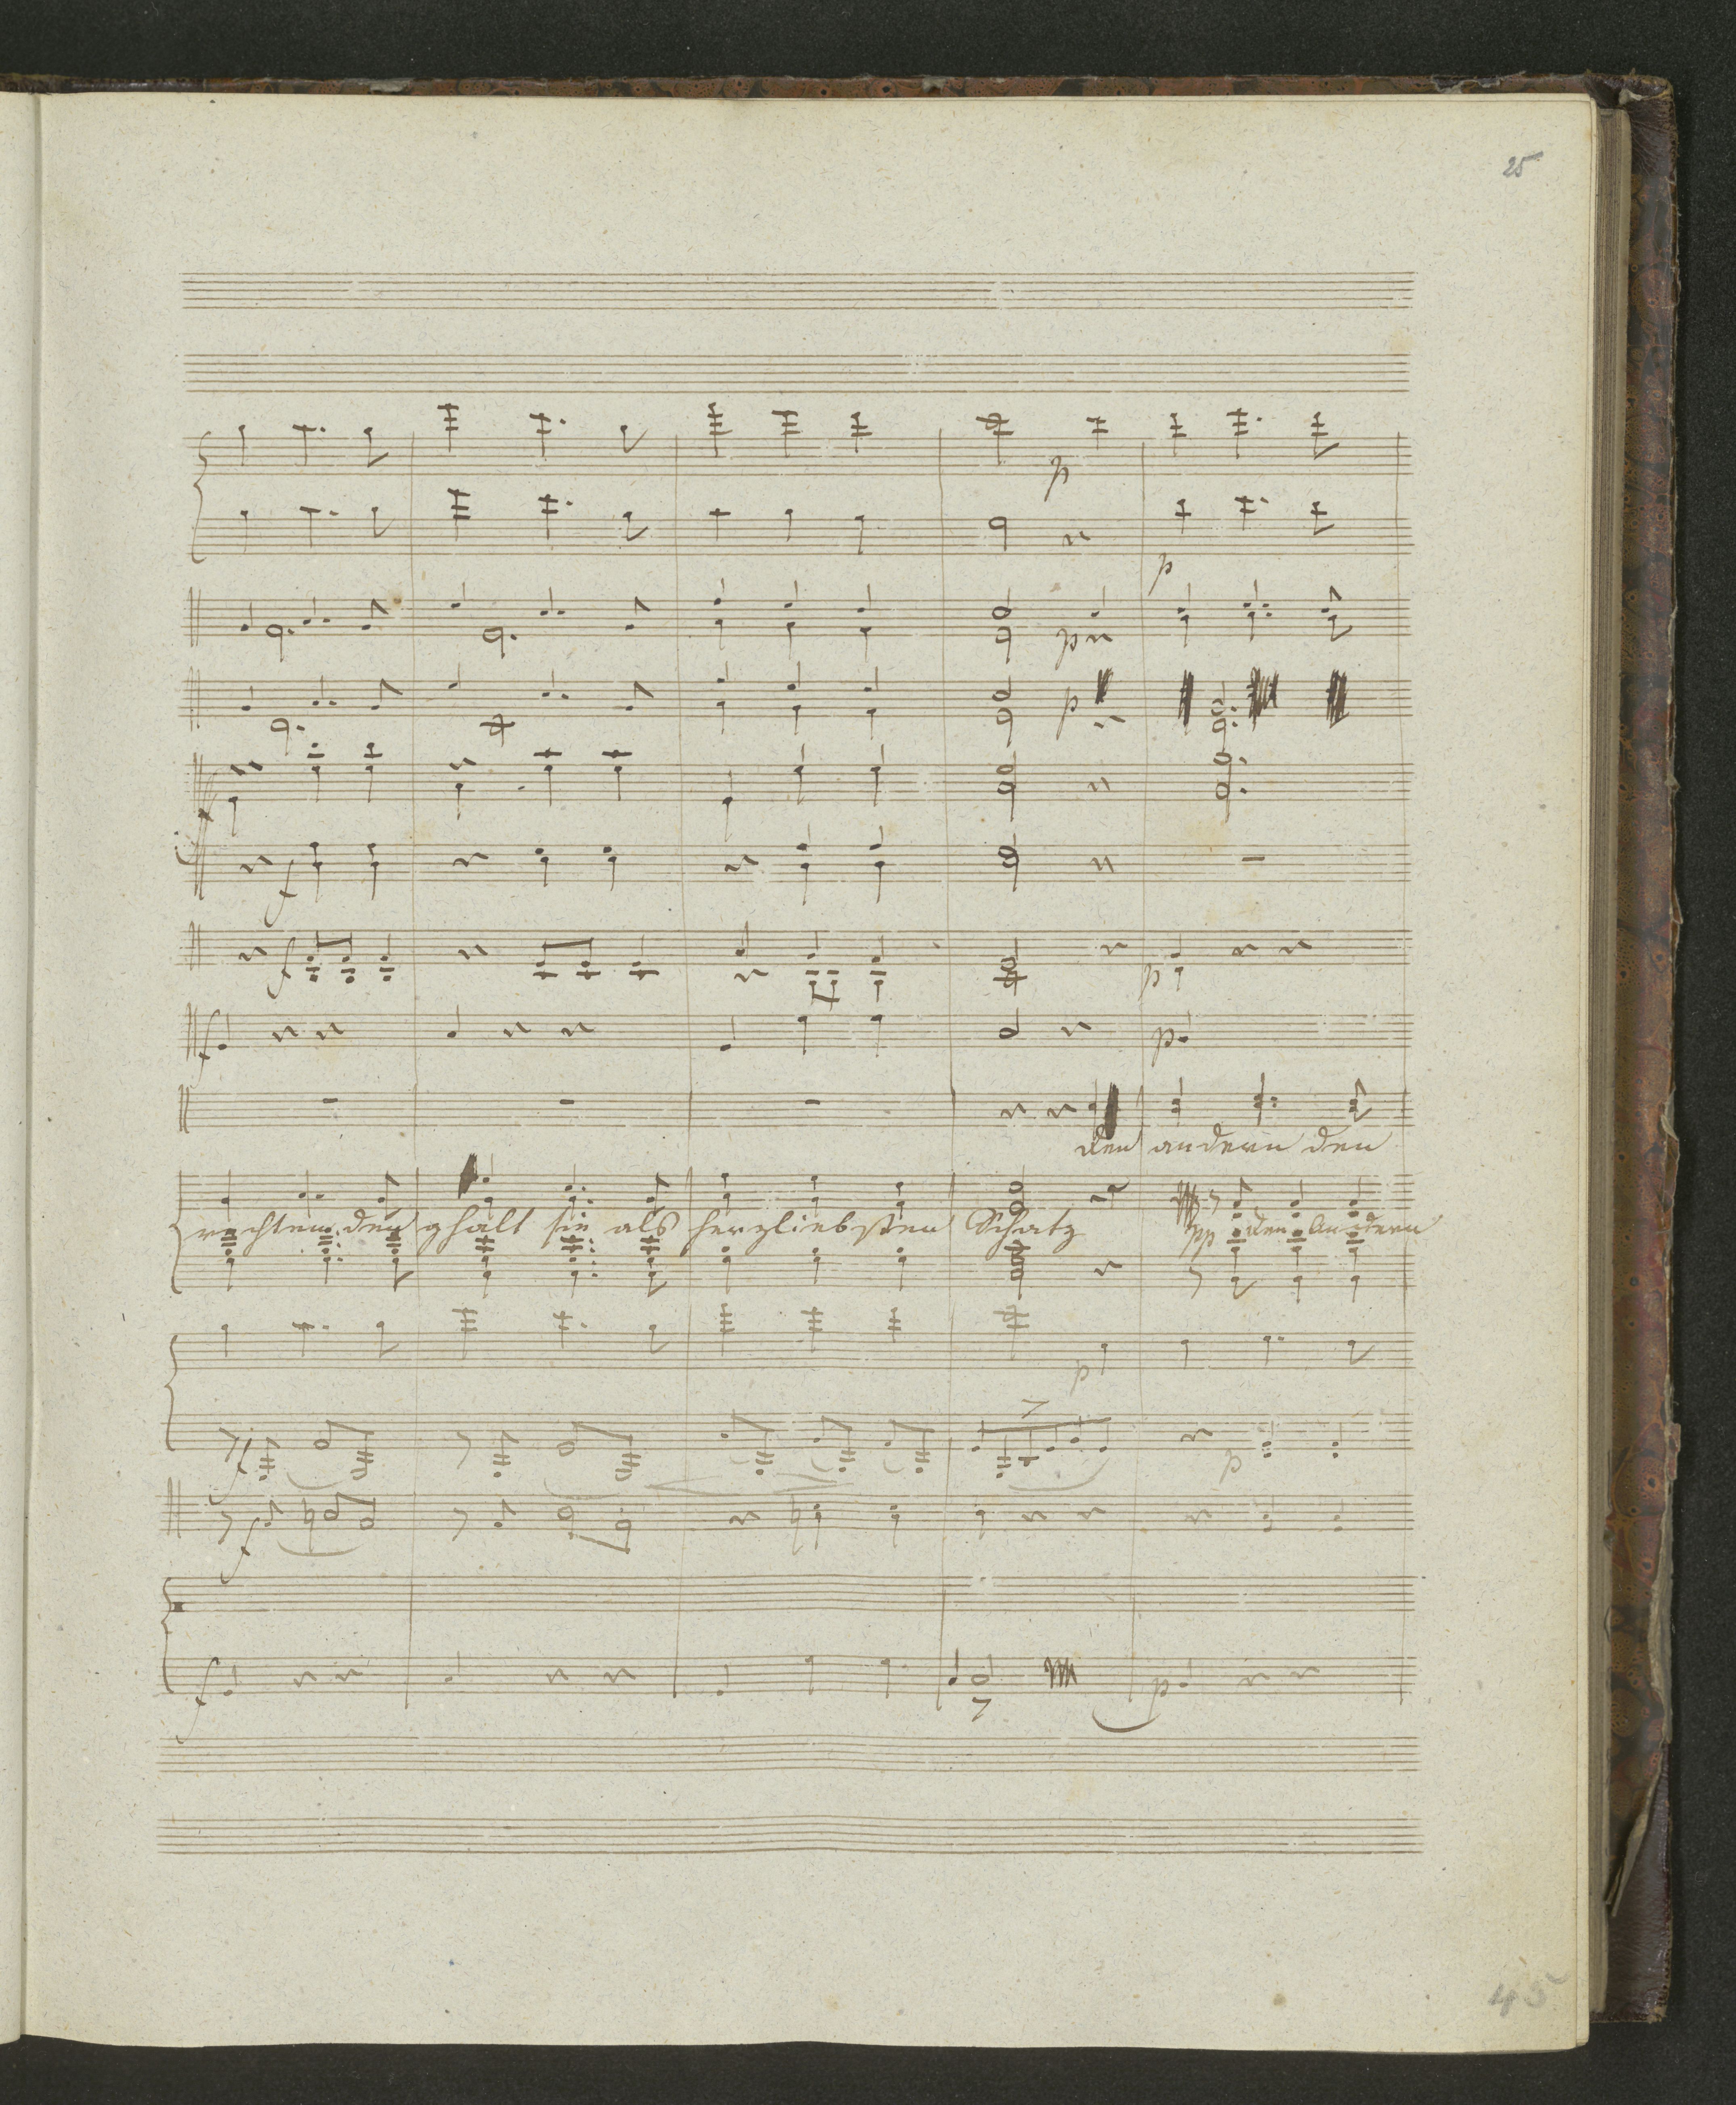 25
p
p
p
p
f
f
f p
f p
den andern den
rechten den ghalt sie als herzliebsten Schatz pp den Andern
p
f p
f
f p
45